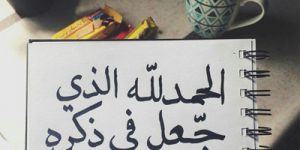 الحمدلله الذي
جعل في ذكره